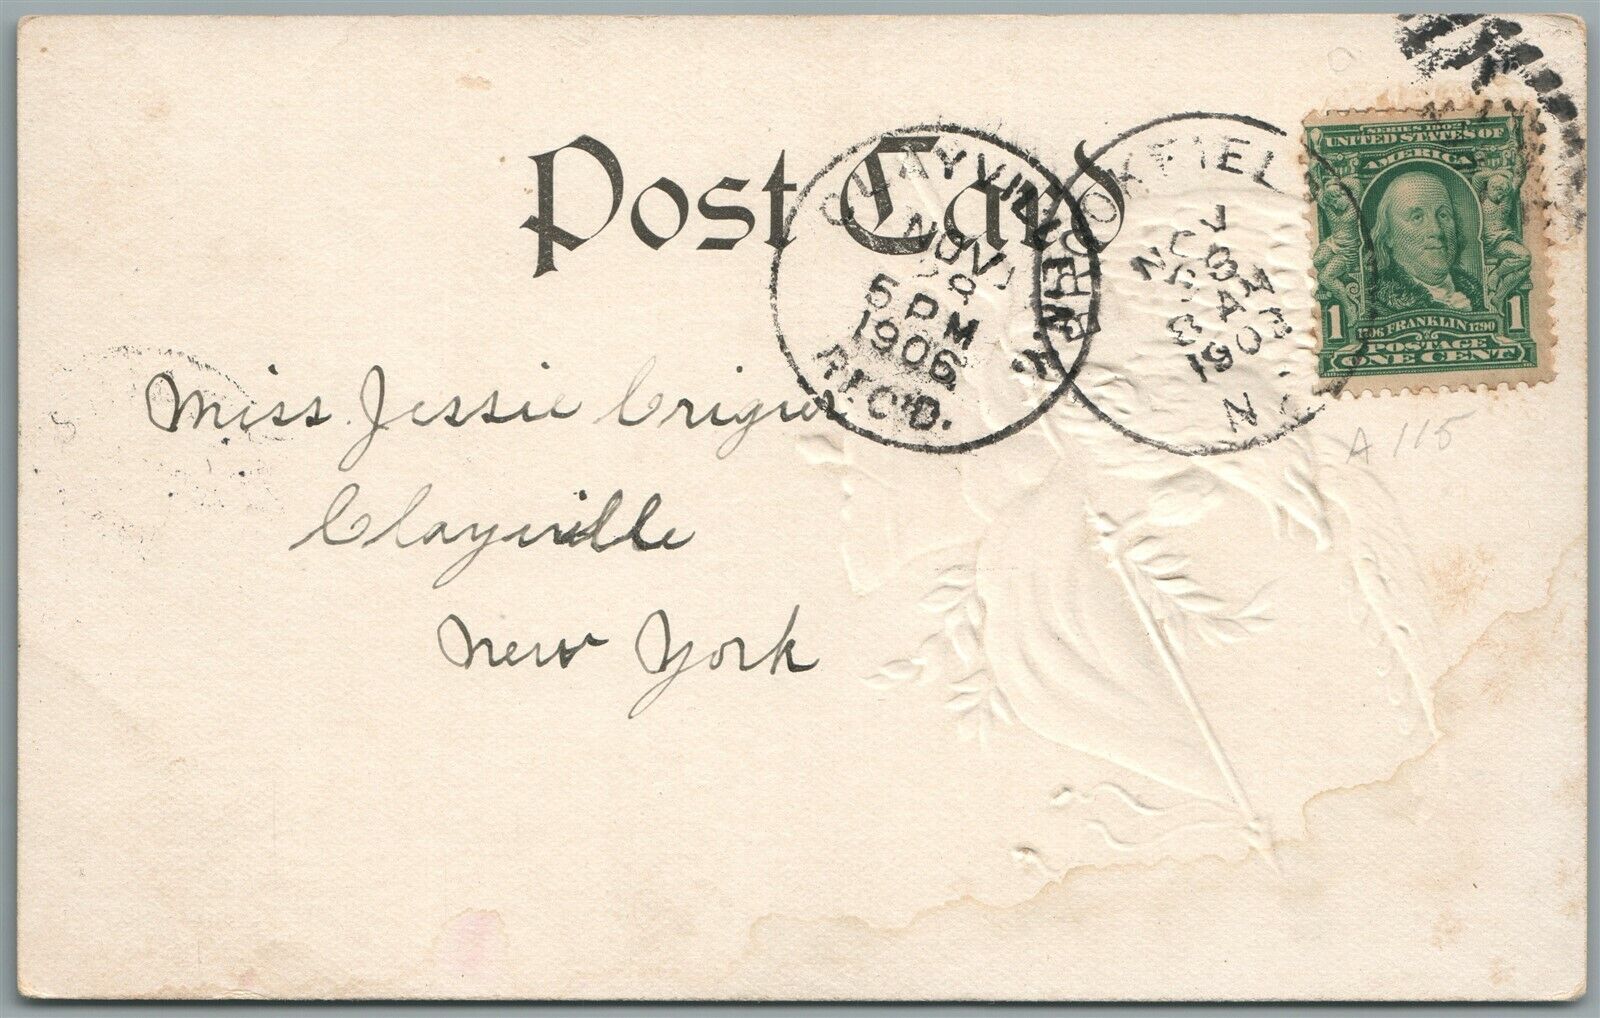 Post Card
CLAYVILLE N.Y.
NOV
29
5 PM
1906
REC'D.
BROOKFIELD
N
SERIES 1902
UNITED STATES OF
AMERICA
1 1706 FRANKLIN 1790 1
POSTAGE
ONE CENT
Miss Jessie
Clayville
New York
A 115